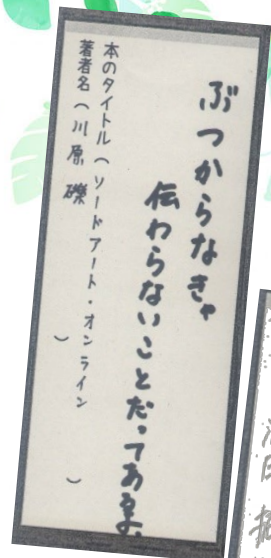 ぶつからなきゃ
伝わらないことだってあるよ。
本のタイトル（ソードアート・オンライン　）
著者名（川原　礫　）